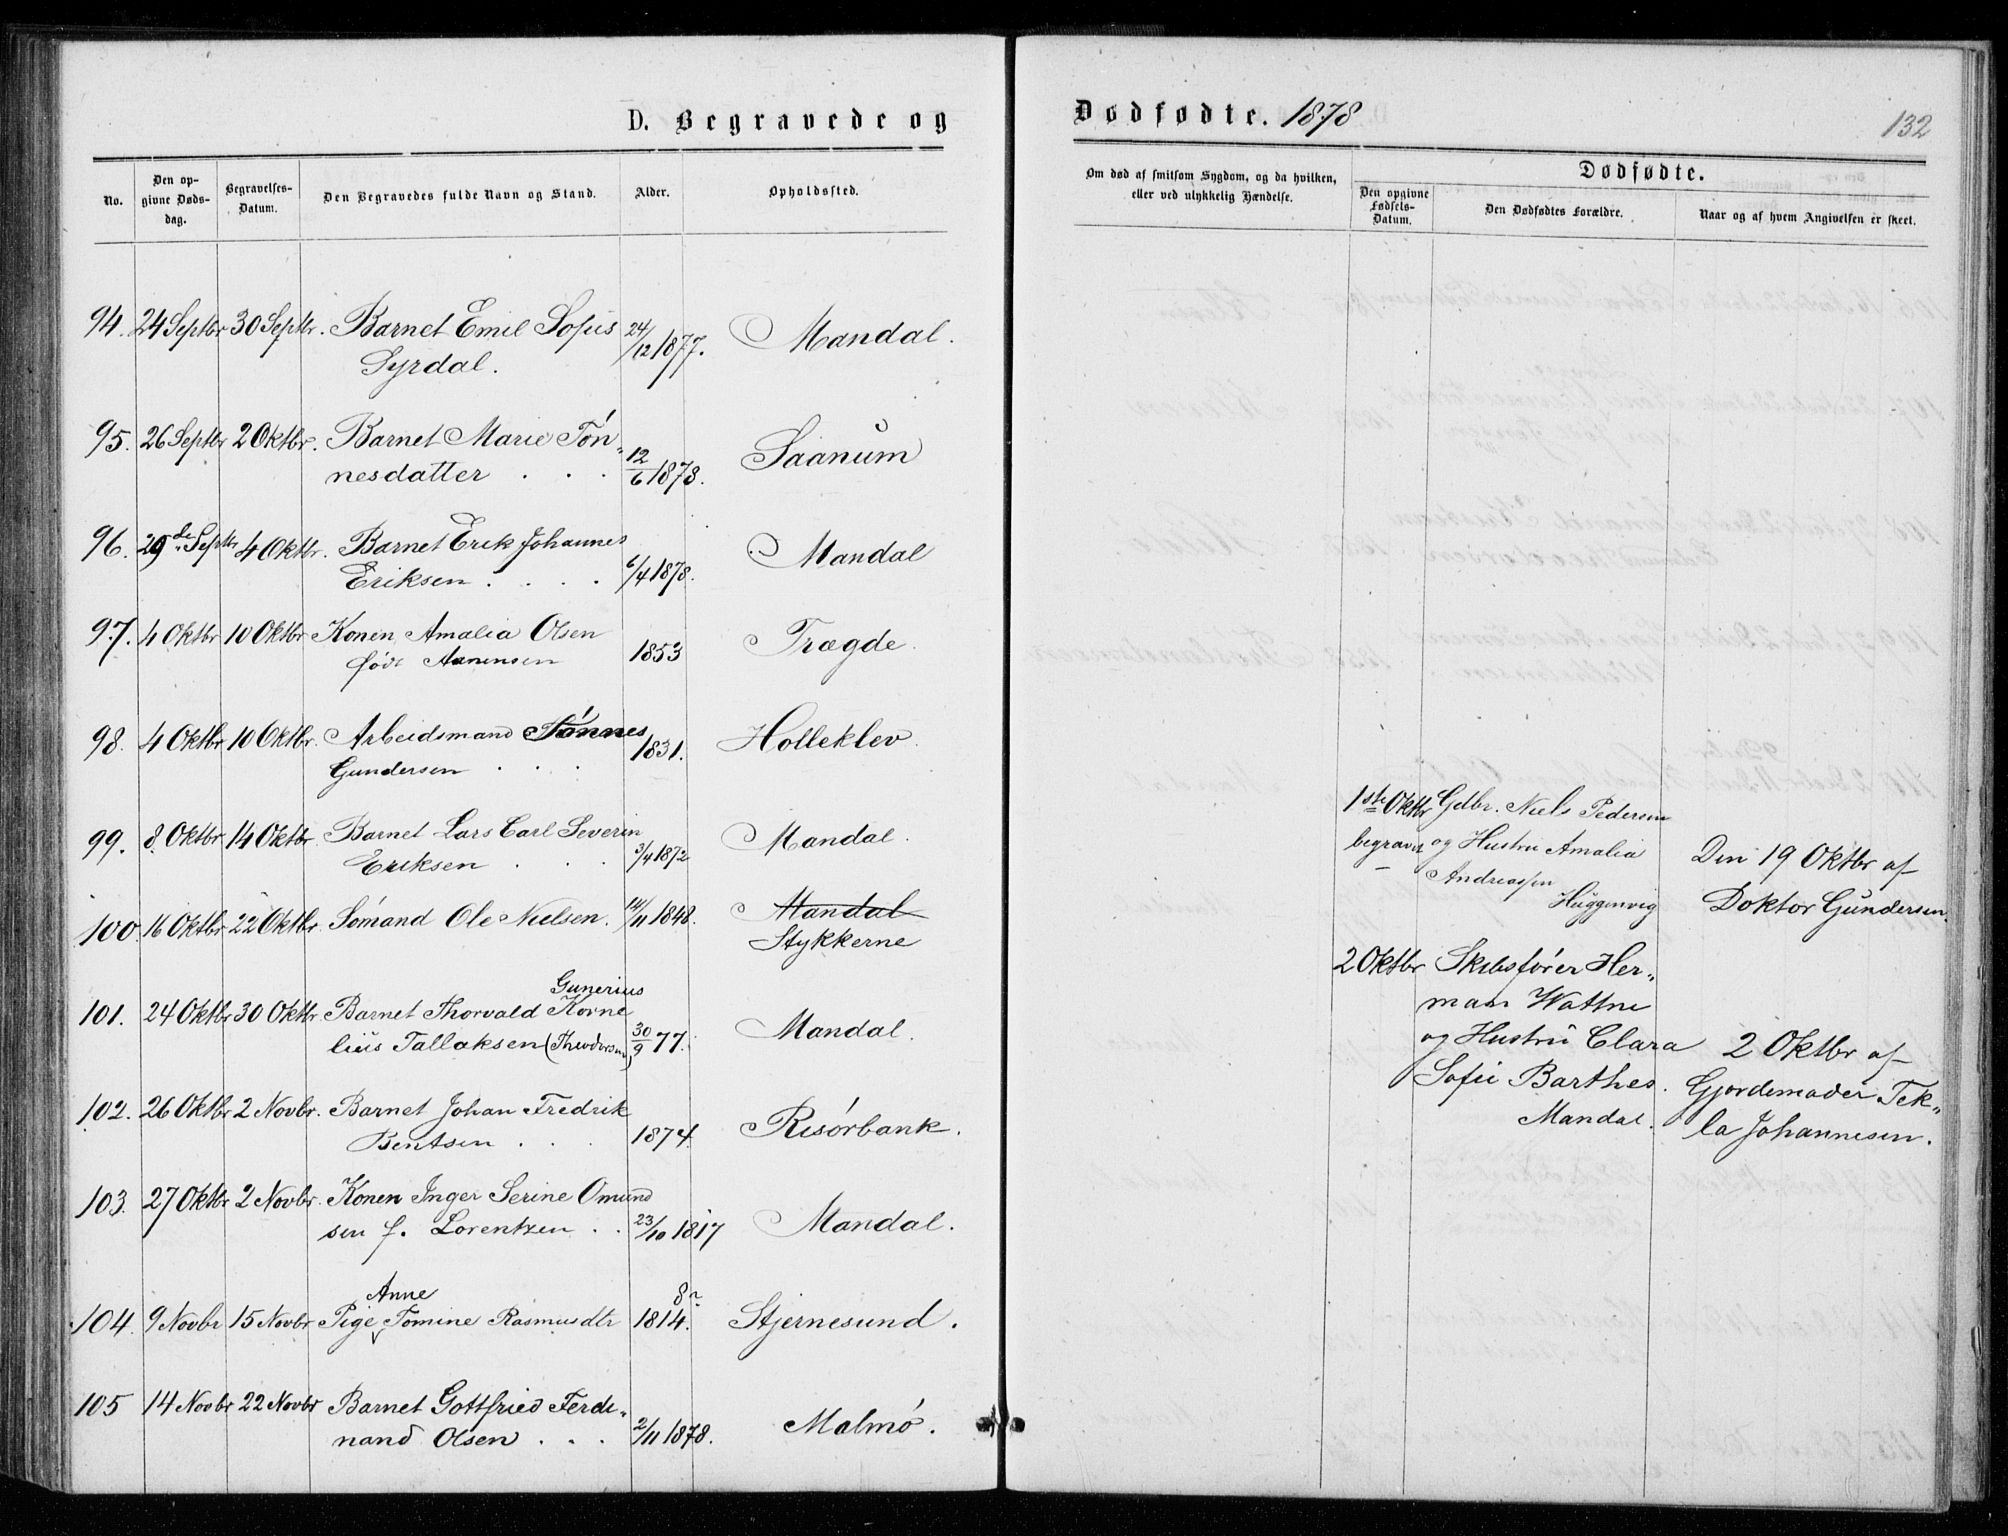 D. Begravede og
No.
Den op-
givne Døds-
dag.
Begravelses-
Datum.
Den Begravedes fulde Navn og Stand.
Alder.
Opholdssted.
94. 24 Septbr 30 Septbr. Barnet Emil Sofus 24/12 1877. Mandal.
Syrdal.
95. 26 Septbr 2 Oktbr. Barnet Marie Tøn„
nesdatter . . . 12/6 1878. Saanum
96. 29de Septbr 4 Oktbr. Barnet Erik Johannes
Eriksen . . . . 6/4 1878. Mandal
97. 4 Oktbr 10 Oktbr Konen Amalia Olsen
født Aanensen 1853 Trægde.
98. 4 Oktbr 10 Oktbr. Arbeidsmand Tønnes
Gundersen . . . 1831. Holleklev.
99. 8 Oktbr 14 Oktbr Barnet Lars Carl Severin
Eriksen . . 3/4 1872 Mandal.
100. 16 Oktbr 22 Oktbr. Sømand Ole Nielsen. 14/11 1848. Mandal
Stykkerne
Gunerius
101. 24 Oktbr 30 Oktbr. Barnet Thorvald Korne
lius Tallaksen (Theodorsen) 30/9 77. Mandal.
102. 26 Oktbr 2 Novbr. Barnet Johan Fredrik
Bentsen . . . 1874. Risørbank.
103. 27 Oktbr 2 Novbr. Konen Inger Serine Omund
sen f. Lorentzen . . 23/10 1817 Mandal.
Anne
104. 9 Novbr 15 Novbr Pige Tomine Rasmusdtr 1814. Stjernesund.
105 14 Novbr 22 Novbr Barnet Gottfried Ferdi„
nand Olsen . . . 2/11 1878. Malmø.
Dødfødte. 1878
132
Om død af smitsom Sygdom, og da hvilken,
eller ved ulykkelig Hændelse.
Dødfødte.
Den opgivne
Fødsels-
Datum.
Den Dødfødtes Forældre.
Naar og af hvem Angivelsen er skeet.
1ste Oktbr Gdbr. Niels Pedersen
begravet og Hustru Amalia
Andreassen
Huggenvig
Den 19 Oktbr af
Doktor Gundersen.
2 Oktbr Skibsfører Her„
man Wattne
og Hustru Clara
Sofie Barthes.
Mandal.
2 Oktbr af
Gjordemoder Tek„
la Johannesen.